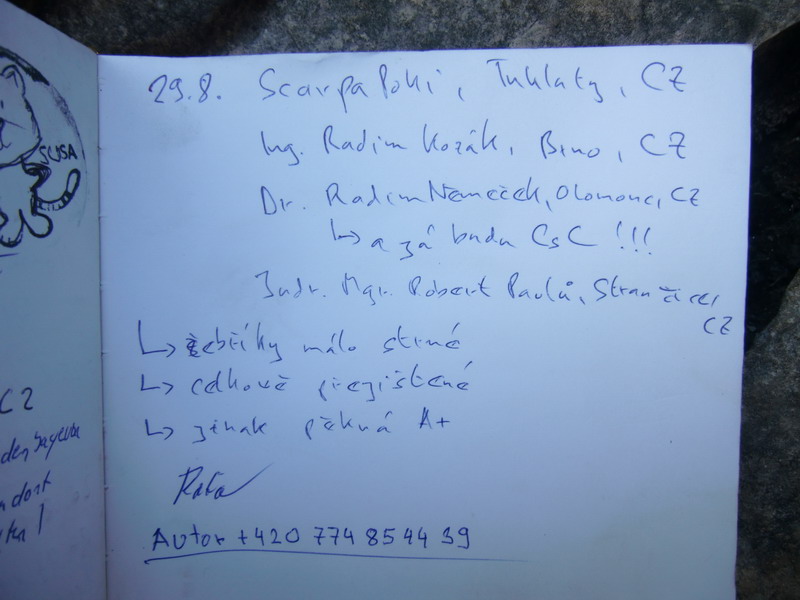 SCUSA
29.8. Scarpa Poki, Tuklaty, CZ
Ing. Radim Kozák, Brno, CZ
Dr. Radim Němeček, Olomouc, CZ
↳ a zá budu CsC !!!
Judr. Mgr. Robert Pavlů, Strančice,
CZ
↳ žebříky málo strmé
↳ celkově přejištěné
↳ jinak pěkná A+
Autor +420 774 85 44 39
CZ